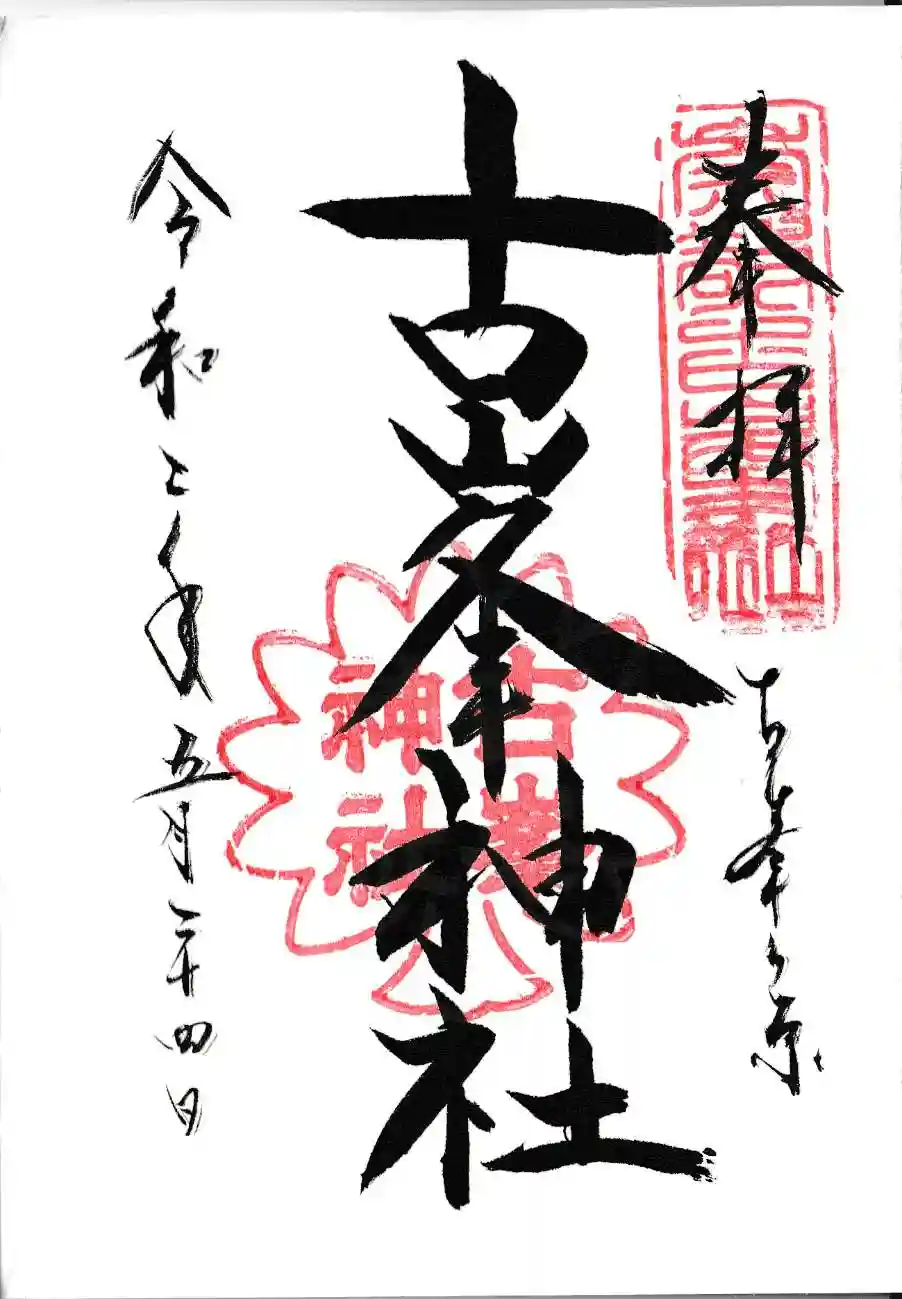 奉拝
古峯ヶ原
古峯神社
古峯
神社
令和二年五月二十四日